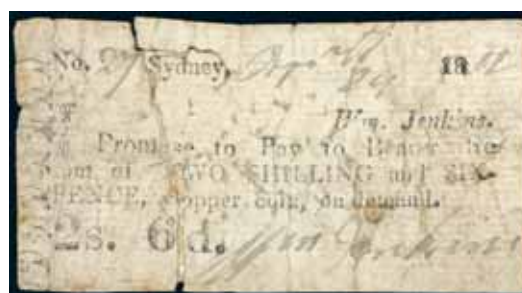 No. 27 Sydney, 18
Wm. Jenkins.
Promise to Pay to Bearer the
sum of TWO SHILLING and SIX-
PENCE, Copper coin, on demand.
2s. 6d. Wm Jenkins